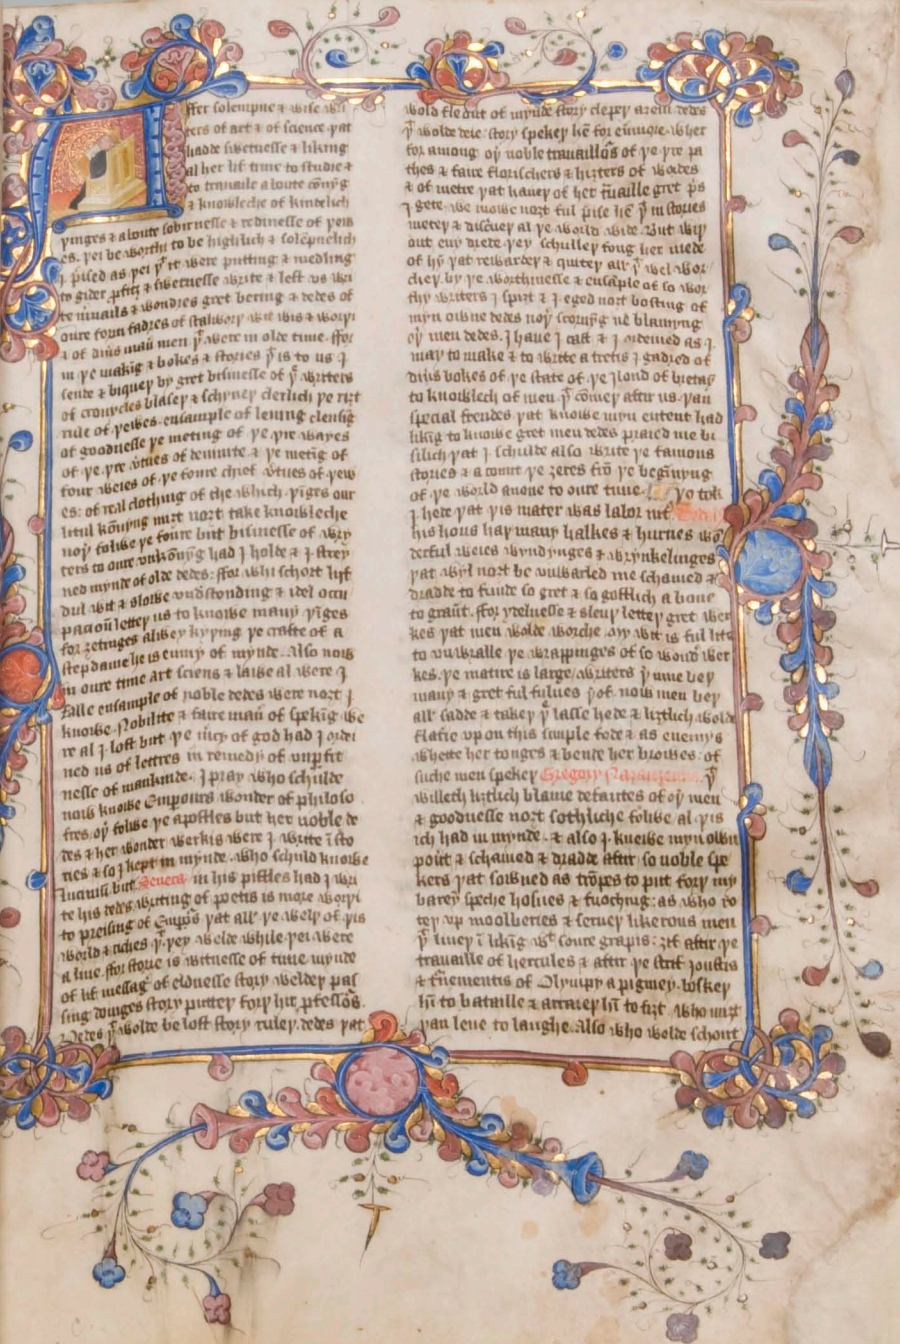 After solempne & wise wri
ters of art & of science þat
hadde swetnesse & liking
al her lif time to studie &
to trauaile aboute conyng
& knowleche of kindelich
þinges & aboute sobirnesse & redinesse of þew
es. þei be worthi to be highlich & solempnelich
I preised as þei þat were putting & medling
to gider profitz & swetnesse write & left us wri
te meruails & wondres gret bering & dedes of
oure forn fadres of stalworþ wit wis & worþi
& of diuers maner men þat were in olde time. ffor
in þe making & bokes & stories þat is to us I
sende & biqueþ by gret bisinesse of þe writers
of cronycles blaseþ & schyneþ clerlich þe riȝt
rule of þewes ensample of leuing clensing
of goodnesse þe meting of þe þre wayes
of þe þre vertues of deuinite & þe meting of
four weies of þe foure chief vertues of þew
es: of real clothing of the which þinges our
litul konnyng miȝt noȝt take knowleche
noþer folwe þe foure but bisinesse of wry
ters to oure unkonnyng had I holde & I strey
ned mynde of olde dedes: ffor whi schort lyf
dul wit & slowe understonding & idel occu
pacioun letteþ us to knowe many þinges
forȝetingnes alwey kyþing þe crafte of a
stepdame he is enmy of mynde. Also now
in oure time art sciens & lawe al were I
falle ensample of noble dedes were noȝt I
knowe. Nobilite & faire maner of speking we
re al I loft but þe mercy of god had I ordei
ned us of lettres in remedy of unperfit
nesse of mankinde. I pray who schulde
now knowe Emperours wonder of philoso
fres. oþer folwe þe apostles but her noble de
des & her wonder werkis were I write in sto
ries & so I kept in mynde. who schuld knowe
lucius but Seneca in his pistles had I wri
te his dedes writing of poetis is more worþi
to preising of Emperours þat alle þe welþ of þis
world & riches þat þey welde while þei were
a liue. for storie is witnesse of time mynde
of lif messager of eldnesse story weldeþ pas
sing doinges story putteþ forþ hir professours.
Dedes þat wolde be lost story ruleþ. dedes þat
wold fle out of mynde story clepeþ aȝein dedes
þat wolde deie. story spekeþ hem for euermore. wher
for among oþer noble trauaillours of þe þre pa
thes & faire florischers & hiȝters of wordes
& of metre þat haueþ of her trauaille gret pris
I gete. we mowe noȝt ful preise hem þat in stories
meteþ & discreueþ al þe world wide. But wiþ
out eny drede þey schulleþ fong her mede
of him þat rewardeþ & quiteþ all þat wel wor
cheþ. by þe worthinesse & ensample of so wor
thy writers I spirt & I eged noȝt bosting of
myn owne dedes noþer scornyng ne blamyng
oþer men dedes. I haue I cast & I ordeined as I
may to make & to write a tretis I gadred of
diuers bokes of þe state of þe ilond of bretayn
to knowlech of men þat comeþ aftir us. þan
special frendes þat knowe myn entent had
liking to knowe gret men dedes praied me bi
silich þat I schulde also write þe famous
stories & acount þe ȝeres from þe begynnyng
of þe world anone to oure time. þo tok
I hede þat þis mater was labor nit. Dedal
his hous haþ many halkes & hurnes won
derful weies wyndynges & wrynkelinges
þat wyl noȝt be unwarled me schamed &
dradde to finde so gret & so gostlich a bone
to graunt. ffor ydelnesse & sleuþ letteþ gret wer
kes þat men wolde worche. my wit is ful litel
to unwralle þe wrappinges of so wonder wer
kes. þe matire is large. writers þer inne beþ
many & gret ful fulnes þer of. now men beþ
all sadde & takeþ þe lasse hede & liȝtlich wold
flatie upon this simple fode & as enemys
whette her tonges & bende her browes: of
suche men spekeþ Gregory Naȝanzenus þat
willeth liȝtlich blame defautes of oþer men
& goodnesse noȝt sothliche folwe al þis
ich had in mynde. & also I knewe myn own
pouert & schamed & dradde aftir so noble spe
kers þat sowned as trompes to put forþ my
bareyn speche hosnes & snochring: as who so
tey up moolberies & serueþ likerous men
þat liueþ in liking with soure grapis: ȝif aftir þe
trauaille of hercules & aftir þe strif Joustis
& tornementis of Olympy a pigmey. boskeþ
him to bataille & arraieþ him to fiȝt. who miȝt
þan leue to laughe. Also who wolde schont